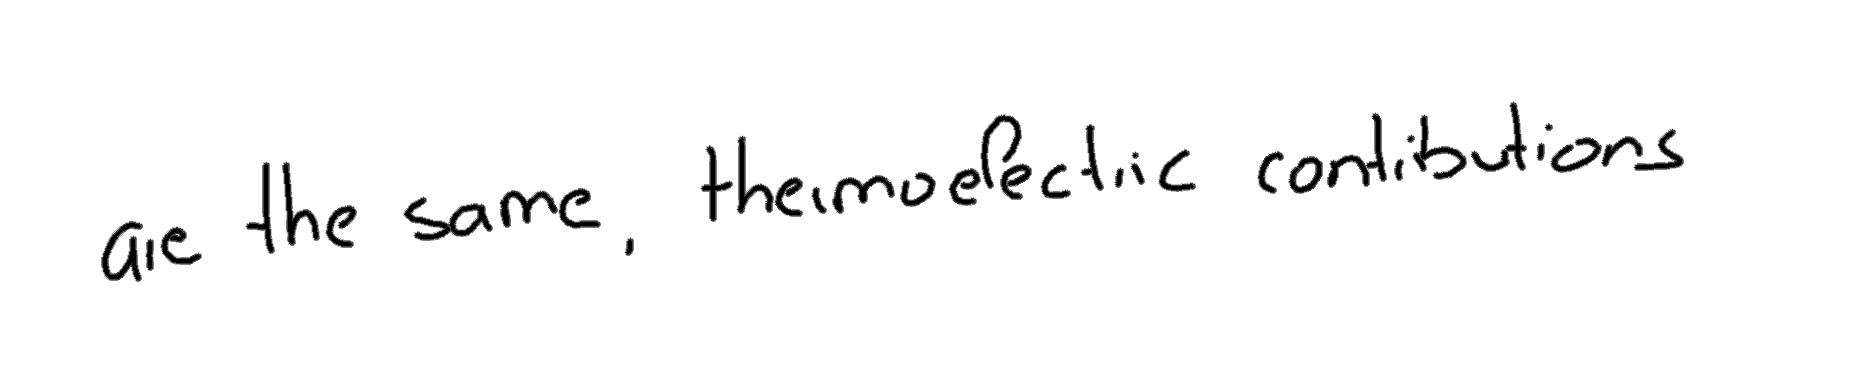 are the same, thermoelectric contributions